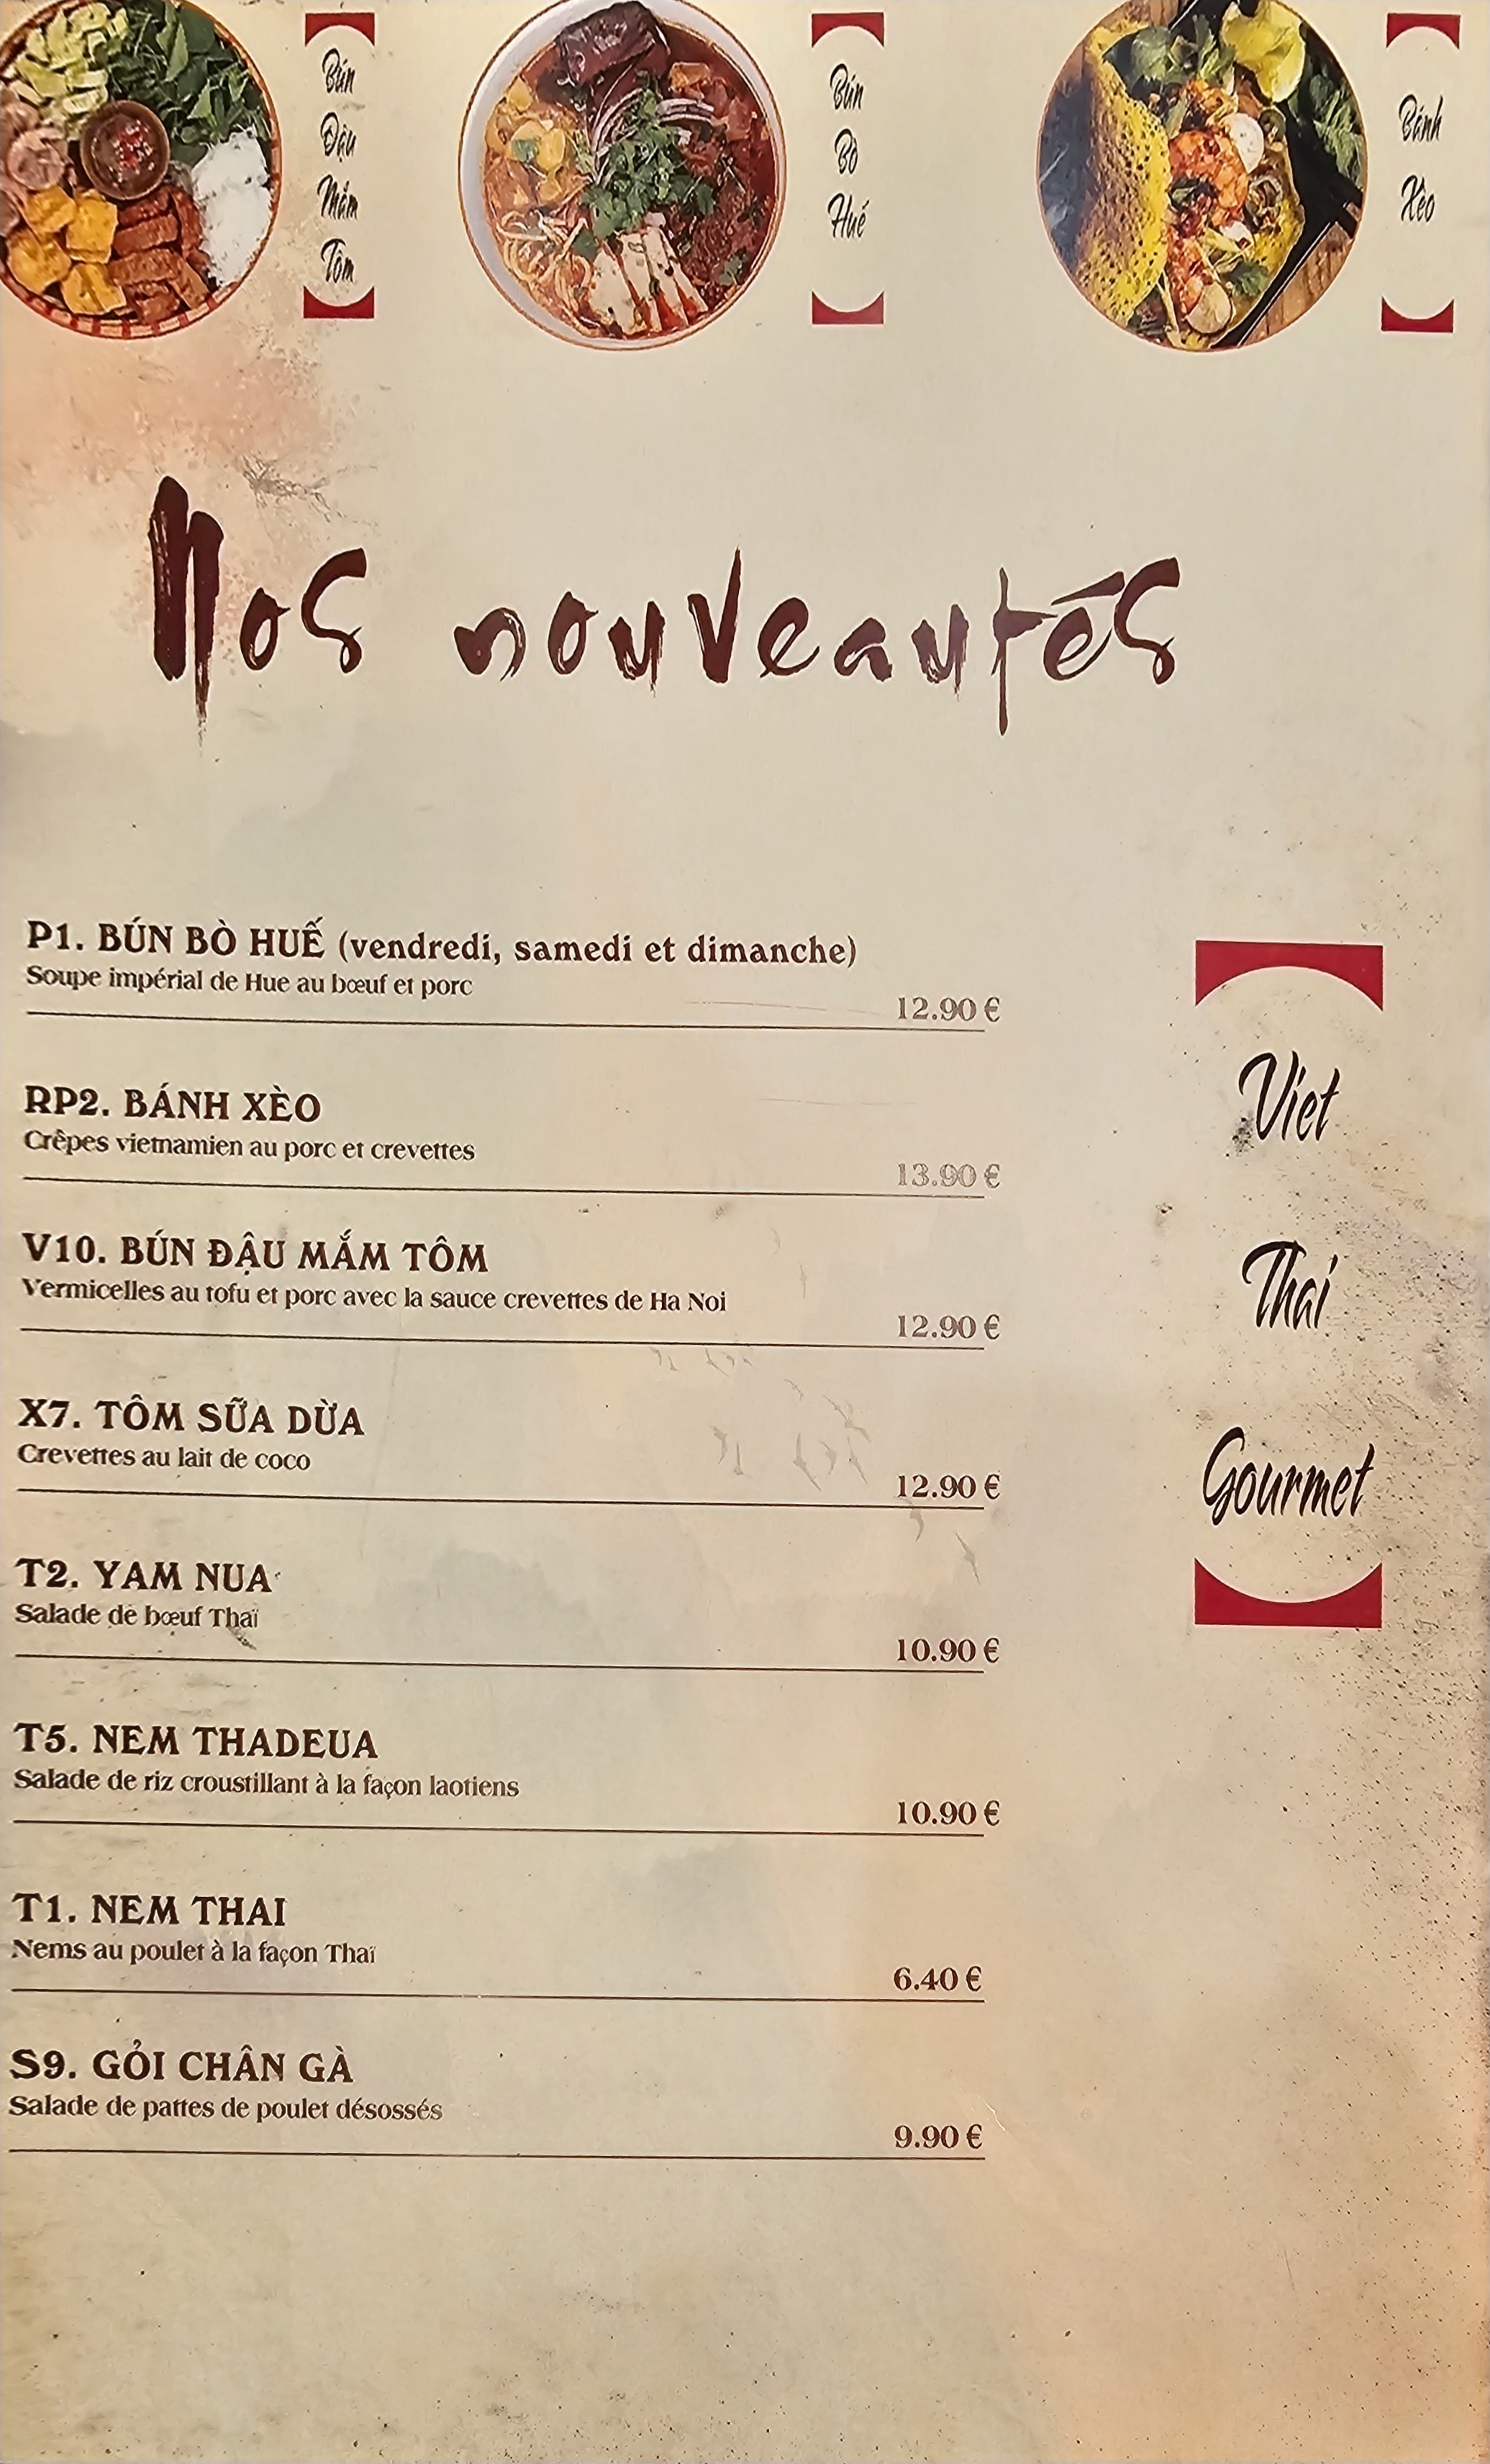 Bún
Đậu
Mắm
Tôm
Bún
Bò
Huế
Bánh
Xèo
Nos nouveautés
P1. BÚN BÒ HUẾ (vendredi, samedi et dimanche)
Soupe impérial de Hue au bœuf et porc
12.90 €
RP2. BÁNH XÈO
Crêpes vietnamien au porc et crevettes
13.90 €
V10. BÚN ĐẬU MẮM TÔM
Vermicelles au tofu et porc avec la sauce crevettes de Ha Noi
12.90 €
X7. TÔM SỮA DỪA
Crevettes au lait de coco
12.90 €
T2. YAM NUA
Salade de bœuf Thaï
10.90 €
T5. NEM THADEUA
Salade de riz croustillant à la façon laotiens
10.90 €
T1. NEM THAI
Nems au poulet à la façon Thaï
6.40 €
S9. GỎI CHÂN GÀ
Salade de pattes de poulet désossés
9.90 €
Viet
Thai
Gourmet